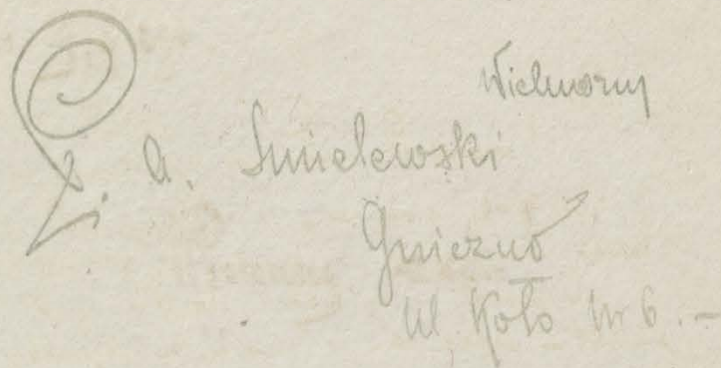 Wielmożny
A. Śmielewski
Gniezno
ul. Koło Nr 6.-